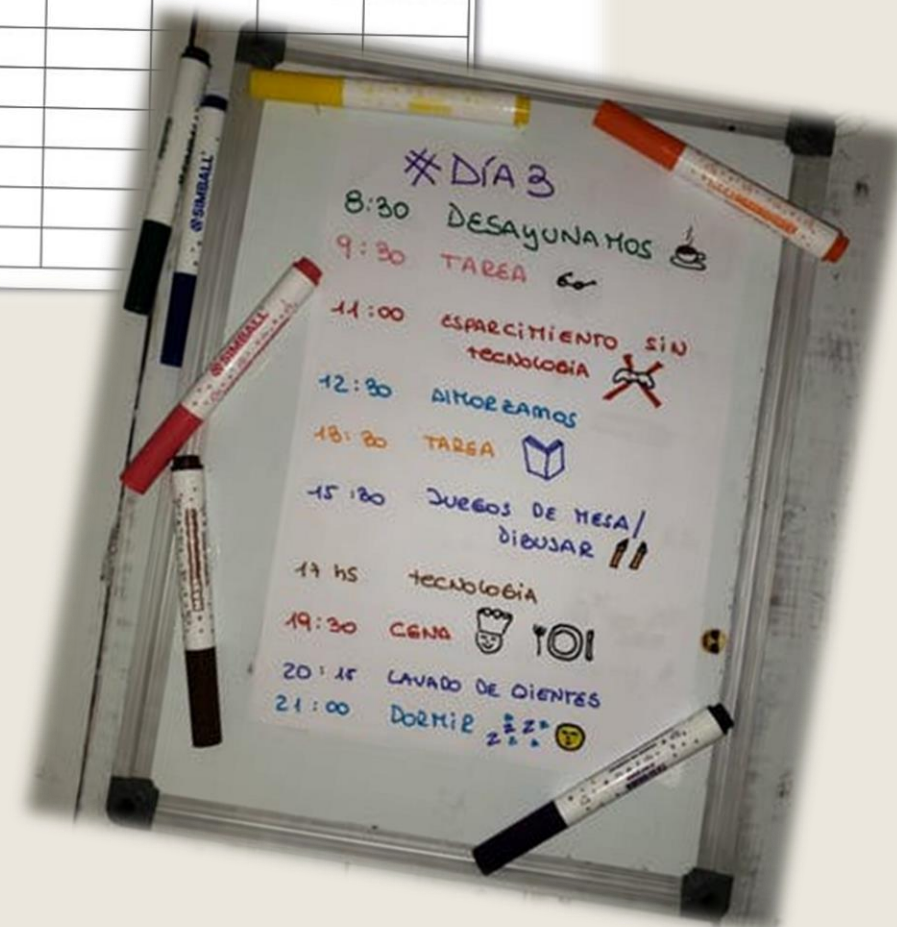 #DÍA 3
8:30 DESAYUNAMOS
9:30 TAREA
11:00 ESPARCIMIENTO SIN
TECNOLOGIA
12:30 ALMORZAMOS
13:30 TAREA
15:30 JUEGOS DE MESA/
DIBUJAR
17 hS TECNOLOGIA
19:30 CENA
20:15 LAVADO DE DIENTES
21:00 DORMIR zzzz
SIMBALL
SIMBALL